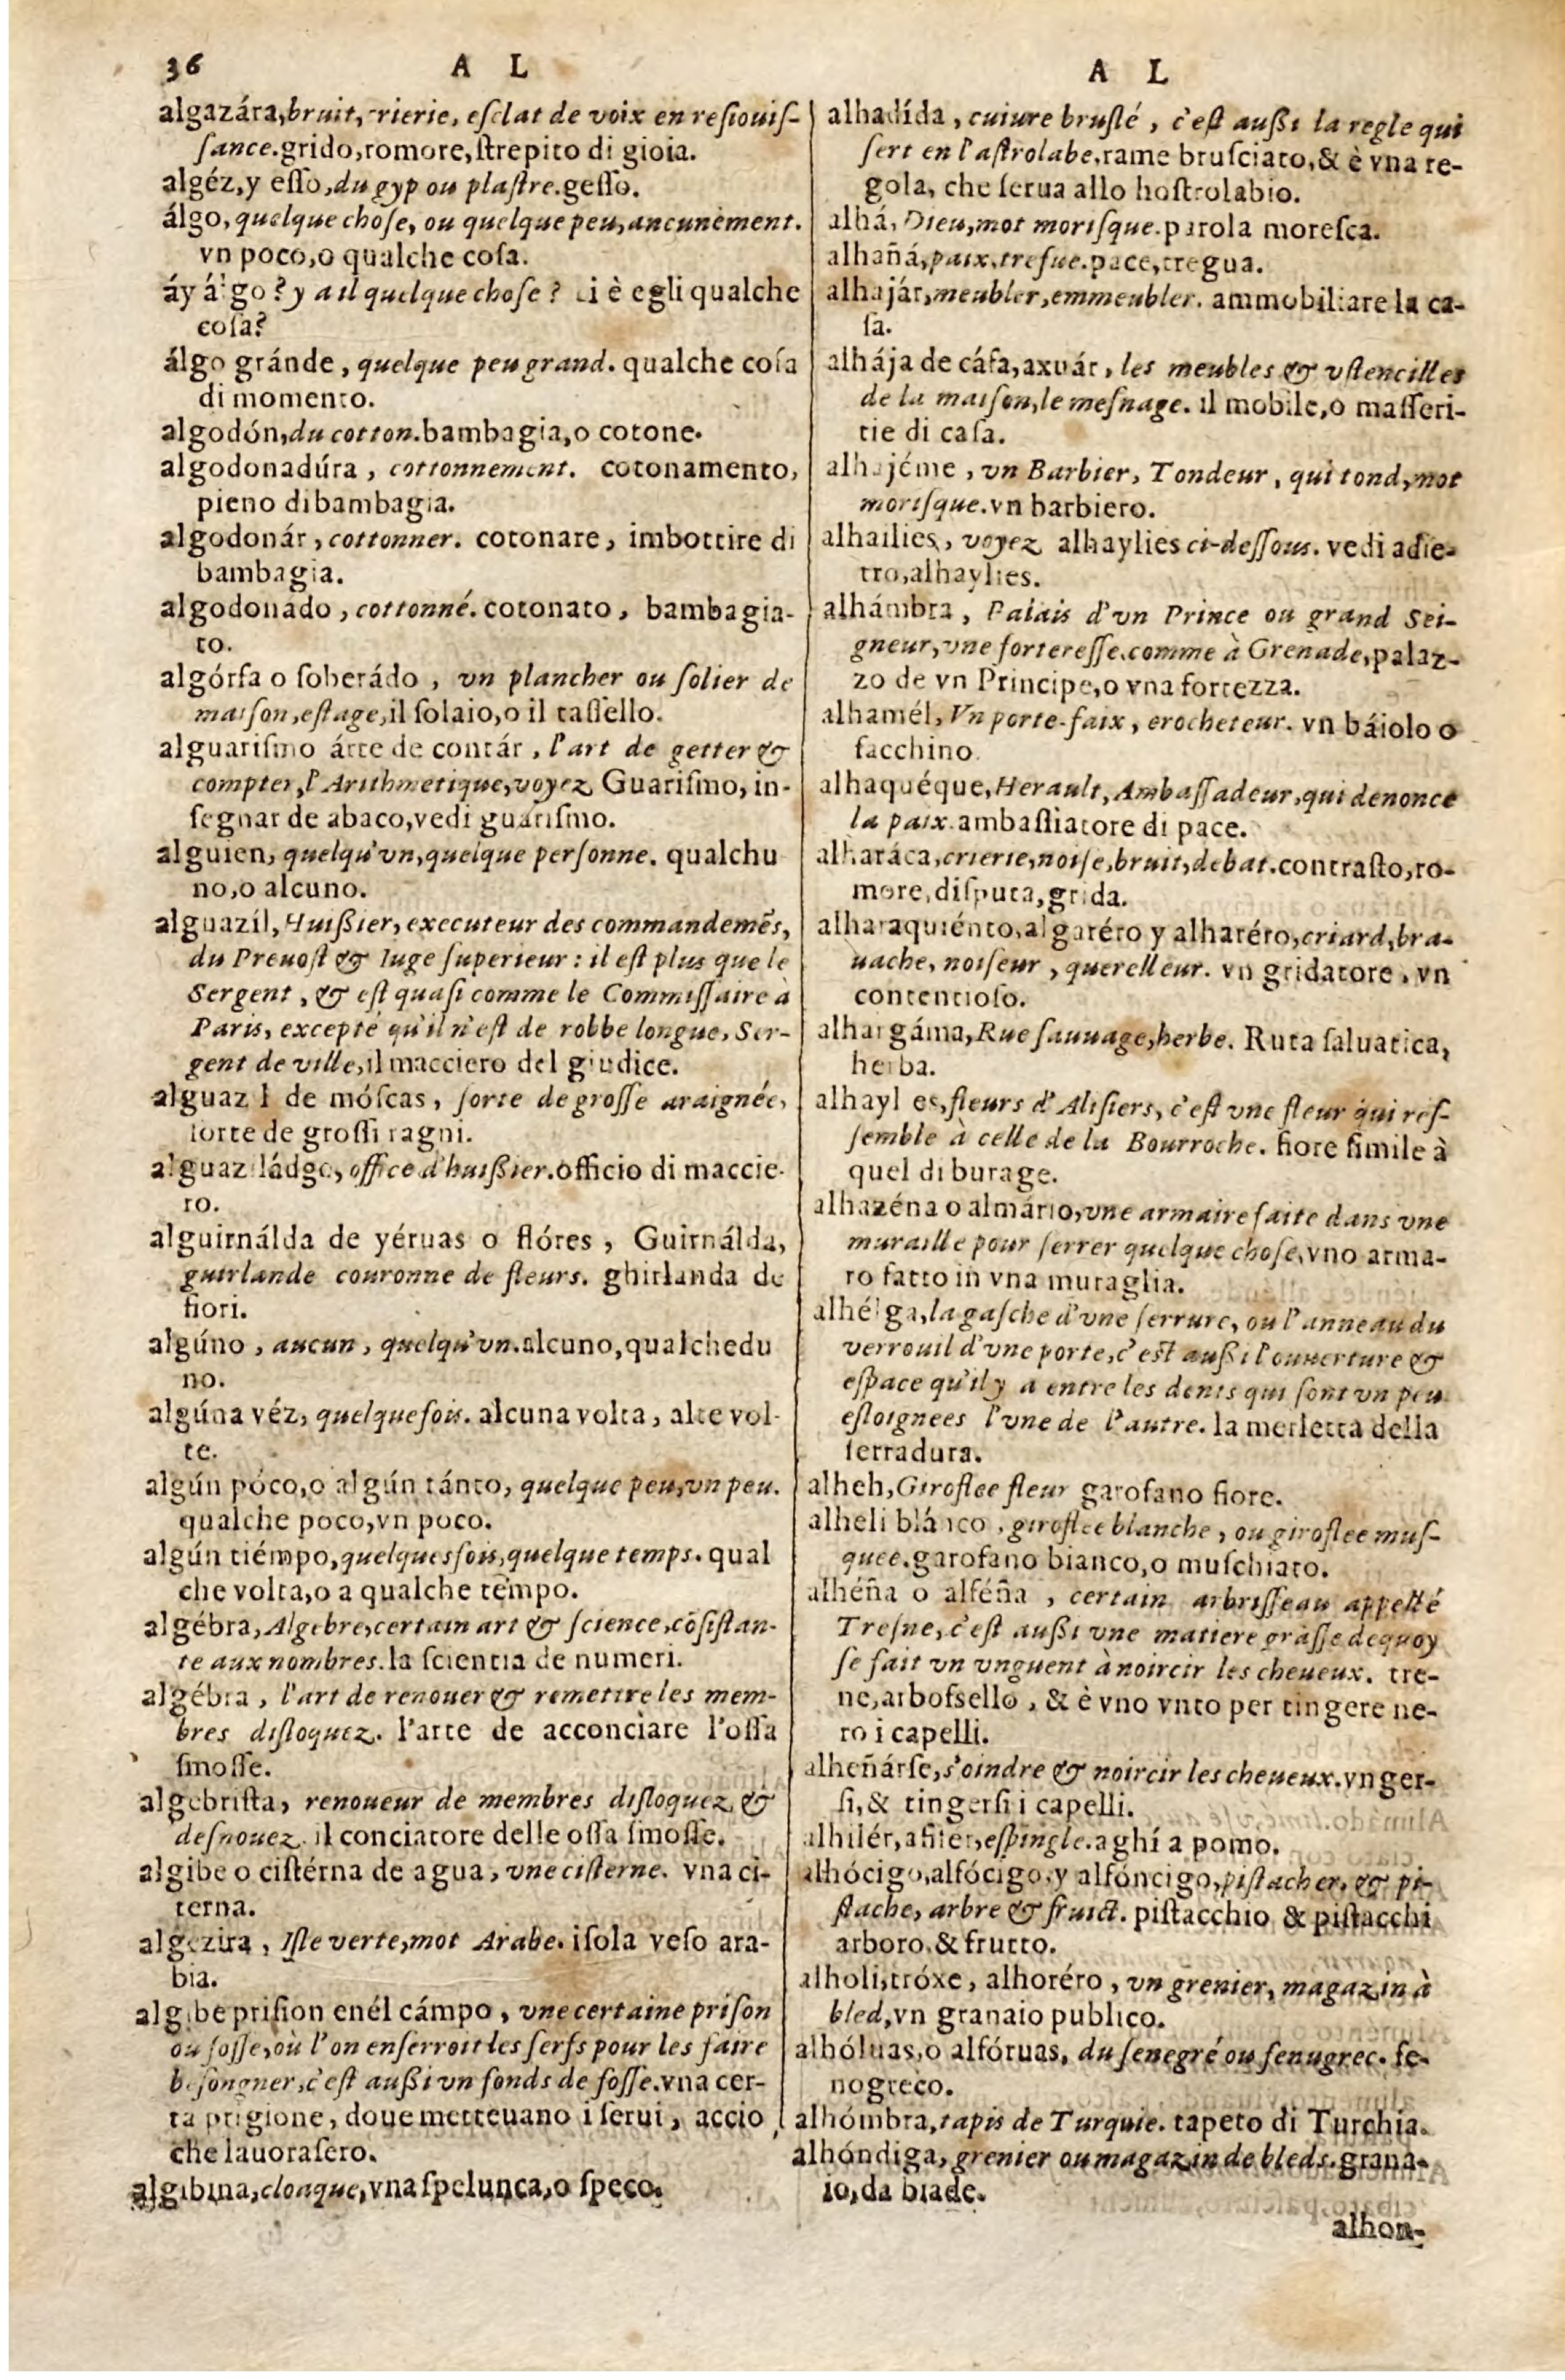 36 A L
algazára, bruit, crierie, esclat de voix en resiouiſ-
ſance. grido, romore, ſtrepito di gioia.
algéz, y eſſo, du gyp ou plaſtre. geſſo.
álgo, quelque choſe, ou quelque peu, aucunement.
vn poco, o qualche coſa.
áy álgo? y a il quelque choſe? ci è egli qualche
coſa?
álgo gránde, quelque peu grand. qualche coſa
di momento.
algodón, du cotton. bambagia, o cotone.
algodonadúra, cottonnement. cotonamento,
pieno di bambagia.
algodonár, cottonner. cotonare, imbottire di
bambagia.
algodonado, cottonné. cotonato, bambagia-
to.
algórfa o ſoberádo, vn plancher ou ſolier de
maiſon, eſtage, il ſolaio, o il taſſello.
alguariſmo árte de contár, l'art de getter &
compter, l'Arithmetique, voyez Guariſmo, in-
ſegnar de abaco, vedi guariſmo.
alguien, quelqu'vn, quelque perſonne. qualchu
no, o alcuno.
alguazíl, Huiſſier, executeur des commandemẽs,
du Preuoſt & Iuge ſuperieur: il eſt plus que le
Sergent, & eſt quaſi comme le Commiſſaire à
Paris, excepté qu'il n'eſt de robbe longue, Ser-
gent de ville, il macciero del giudice.
alguazil de móſcas, ſorte de groſſe araignée,
ſorte de groſſi ragni.
alguaziládgo, office d'huiſſier. officio di maccie-
ro.
alguirnálda de yéruas o flóres, Guirnálda,
guirlande couronne de fleurs. ghirlanda de
fiori.
algúno, aucun, quelqu'vn. alcuno, qualchedu
no.
algúna véz, quelquefois. alcuna volta, alte vol-
te.
algún póco, o algún tánto, quelque peu, vn peu.
qualche poco, vn poco.
algún tiémpo, quelquesfois, quelque temps. qual
che volta, o a qualche tempo.
algébra, Algebre, certain art & ſcience, cõſiſtan-
te aux nombres. la ſcientia de numeri.
algébra, l'art de renouer & remettre les mem-
bres diſloquez. l'arte de acconciare l'oſſa
ſmoſſe.
algebriſta, renoueur de membres diſloquez &
deſnouez. il conciatore delle oſſa ſmoſſe.
algibe o ciſtérna de agua, vne ciſterne. vna ci-
terna.
algezira, Iſle verte, mot Arabe. iſola veſo ara-
bia.
algibe priſion enél cámpo, vne certaine priſon
ou foſſe, où l'on enſerroit les ſerfs pour les faire
beſongner, c'eſt auſſi vn fonds de foſſe. vna cer-
ta prigione, doue metteuano i ſerui, accio
che lauoraſero.
algibina, cloaque, vna ſpelunca, o ſpeco.
A L
alhadída, cuiure bruſlé, c'eſt auſſi la regle qui
ſert en l'aſtrolabe, rame bruſciato, & è vna re-
gola, che ſerua allo hoſtrolabio.
alhá, Dieu, mot moriſque. parola moreſca.
alhañá, paix, trefue. pace, tregua.
alhajár, meubler, emmeubler. ammobiliare la ca-
ſa.
alhája de cáſa, axuár, les meubles & vſtencilles
de la maiſon, le meſnage. il mobile, o maſſeri-
tie di caſa.
alhajéme, vn Barbier, Tondeur, qui tond, mot
moriſque. vn barbiero.
alhailies, voyez alhaylies ci-deſſous. vedi adie-
tro, alhaylies.
alhámbra, Palais d'vn Prince ou grand Sei-
gneur, vne fortereſſe, comme à Grenade, palaz-
zo de vn Principe, o vna fortezza.
alhamél, Vn porte-faix, crocheteur. vn báiolo o
facchino.
alhaquéque, Herault, Ambaſſadeur, qui denonce
la paix. ambaſtiatore di pace.
alharáca, crierie, noiſe, bruit, debat. contraſto, ro-
more, diſputa, grida.
alharaquiénto, algaréro y alharéro, criard, bra-
uache, noiſeur, querelleur. vn gridatore, vn
contentioſo.
alhargáma, Rue ſauuage, herbe. Ruta ſaluatica,
herba.
alhaylies, fleurs d'Aliſiers, c'eſt vne fleur qui reſ-
ſemble à celle de la Bourroche. fiore ſimile à
quel di burage.
alhazéna o almário, vne armaire faite dans vne
muraille pour ſerrer quelque choſe, vno arma-
ro fatto in vna muraglia.
alhélga, la gaſche d'vne ſerrure, ou l'anneau du
verrouil d'vne porte, c'eſt auſſi l'ouuerture &
eſpace qu'il y a entre les dents qui ſont vn peu
eſloignees l'vne de l'autre. la merletta della
ſerradura.
alheh, Giroflee fleur garofano fiore.
alheli blánco, giroflee blanche, ou giroflee muſ-
quee. garofano bianco, o muſchiato.
alhéña o alféña, certain arbriſſeau appellé
Treſne, c'eſt auſſi vne matiere graſſe dequoy
ſe fait vn vnguent à noircir les cheueux. tre-
ne, arboſsello, & è vno vnto per tingere ne-
ro i capelli.
alheñárſe, s'oindre & noircir les cheueux. vnger-
ſi, & tingerſi i capelli.
alhilér, afiler, eſpingle. aghi a pomo.
alhócigo, alfócigo, y alfóncigo, piſtacher, & pi-
ſtache, arbre & fruict. piſtacchio & piſtacchi
arboro, & frutto.
alholi, tróxe, alhoréro, vn grenier, magazin à
bled, vn granaio publico.
alhóluas, o alfóruas, du ſenegré ou fenugrec. fe-
nogreco.
alhómbra, tapis de Turquie. tapeto di Turchia.
alhóndiga, grenier ou magazin de bleds. grana-
io, da biade.
alhon-